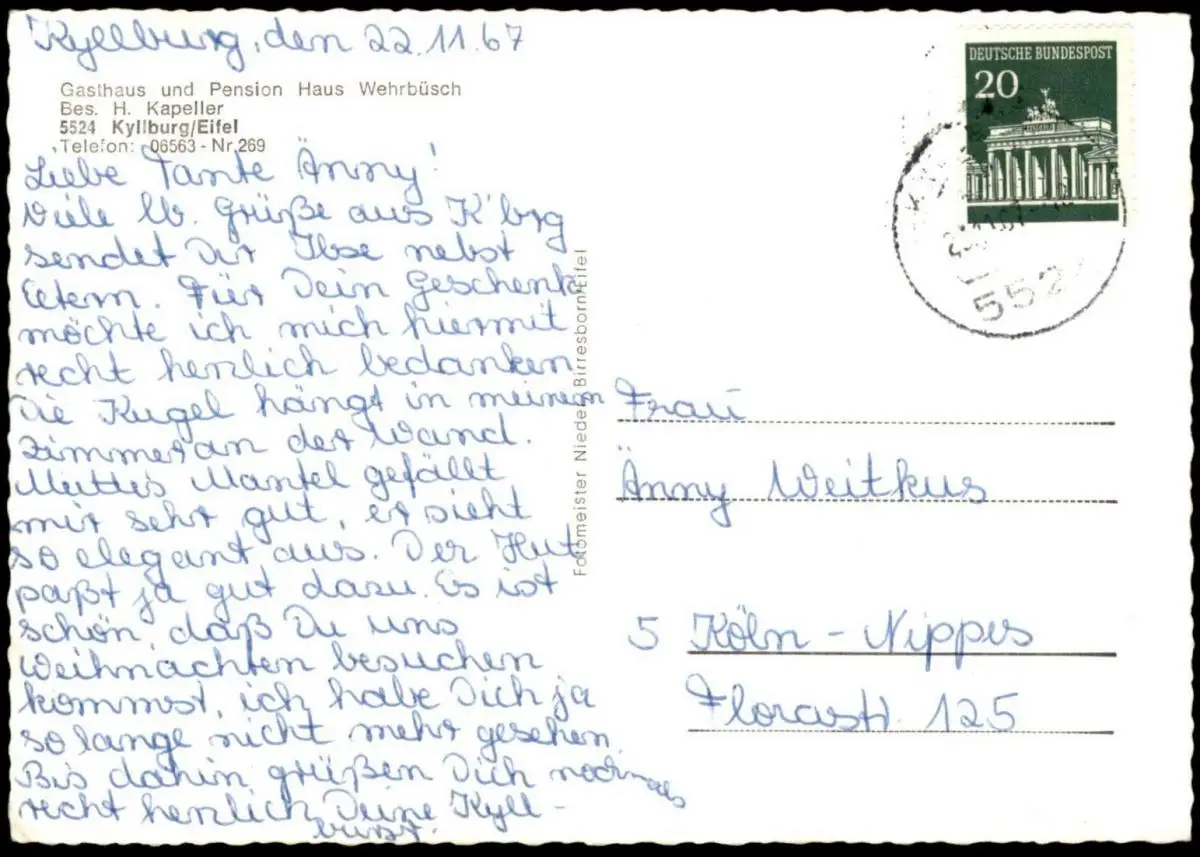 Kyllburg, den 22.11.67
Gasthaus und Pension Haus Wehrbüsch
Bes. H. Kapeller
5524 Kyllburg/Eifel
Telefon: 06563 - Nr. 269
Liebe Tante Änny!
Viele lb. Grüße aus K'brg
sendet Dir Ilse nebst
Eltern. Für Dein Geschenk
möchte ich mich hiermit
recht herzlich bedanken.
Die Kugel hängt in meinem
Zimmer an der Wand.
Muttis Mantel gefällt
mir sehr gut, er sieht
so elegant aus. Der Hut
paßt ja gut dazu. Es ist
schön, daß Du uns
Weihnachten besuchen
kommst, ich habe Dich ja
so lange nicht mehr gesehen.
Bis dahin grüßen Dich nochmals
recht herzlich Deine Kyll-
burger.
Fotomeister Nieder Birresborn/Eifel
DEUTSCHE BUNDESPOST
20
552
Frau
Änny Weitkus
5 Köln - Nippes
Florastr. 125